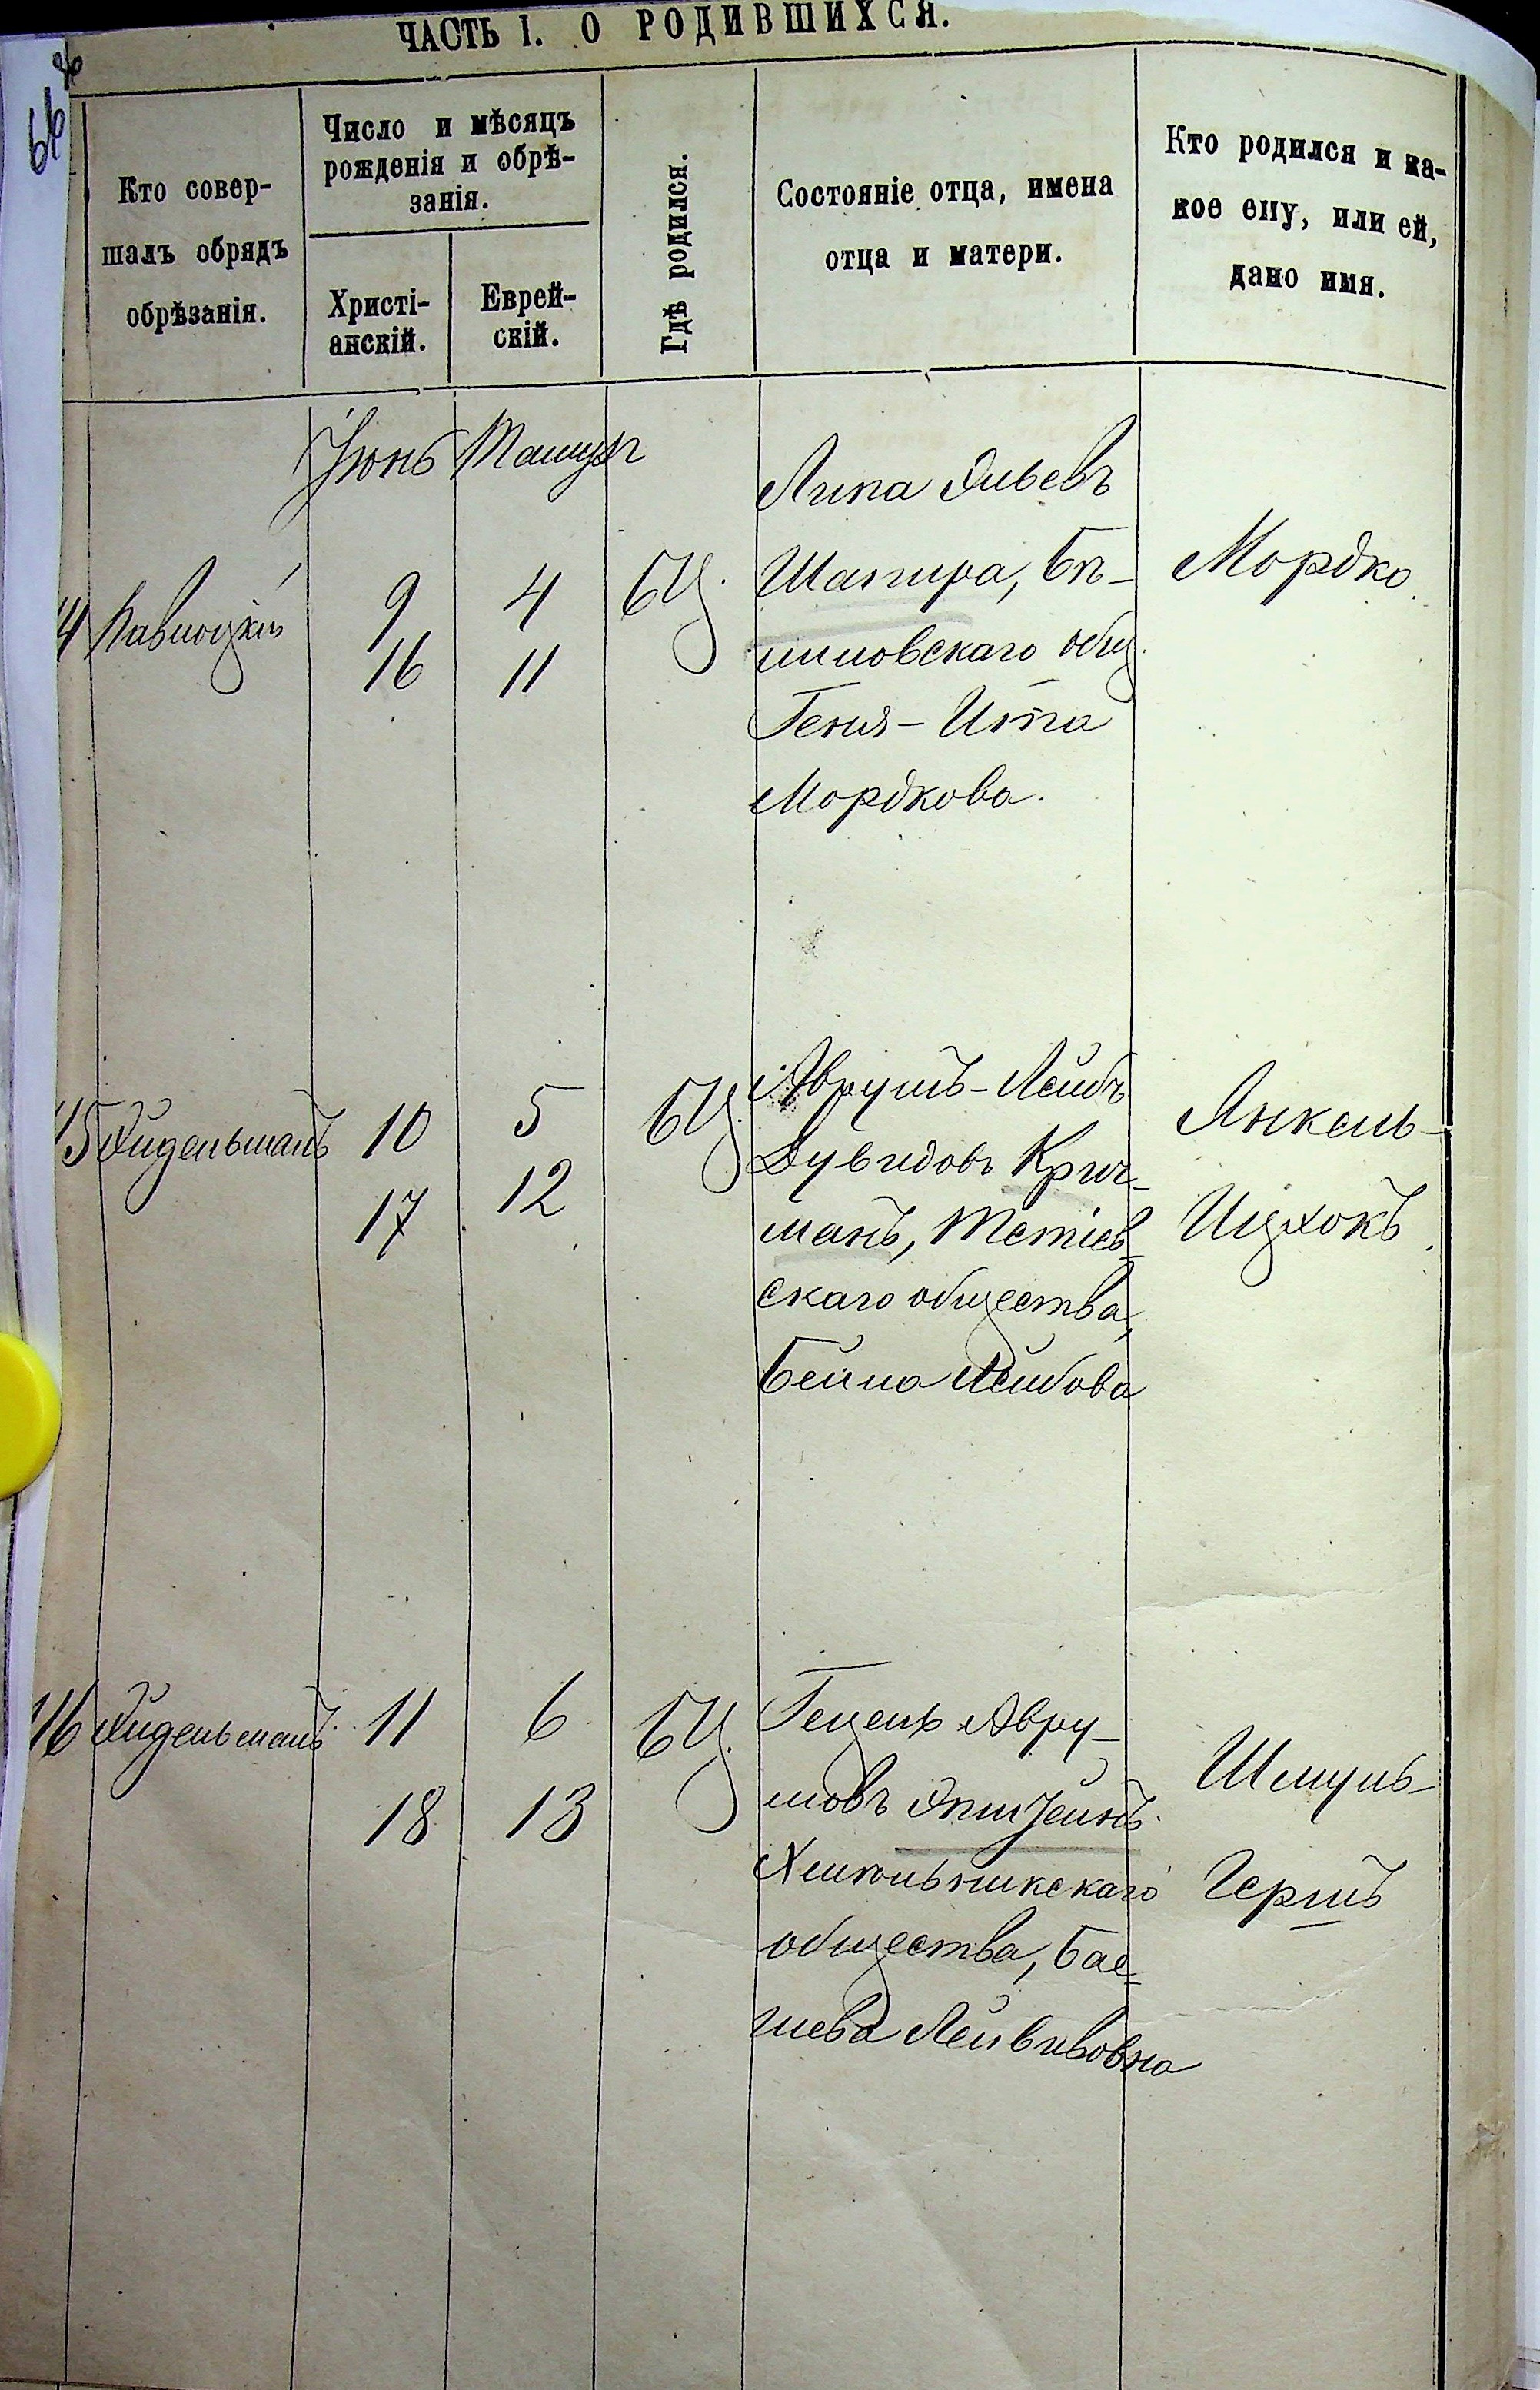 ЧАСТЬ I. О РОДИВШИХСЯ.
66
Кто совер-
шалъ обрядъ
обрѣзанія.
Число и мѣсяцъ
рожденія и обрѣ-
занія.
Христі-
анскій.
Еврей-
скій.
Гдѣ родился.
Состояніе отца, имена
отца и матери.
Кто родился и ка-
кое ему, или ей,
дано имя.
Іюнь
4
9
16
4
11
БЦ.
Липа Эльевъ
Шапира,
скаго общ.
Геня-Ита
Мордкова.
Мордко.
15 Эйдельманъ
10
17
5
12
БЦ.
Аврумъ-Лейбъ
Дувидовъ Крич-
манъ, Тетіев-
скаго общества,
Бейла Лейбова
Янкель-
Ицхокъ.
116 Эйдельманъ
11
18
6
13
БЦ.
Гецель Авру-
мовъ Эпштейнъ
Хмельникскаго
общества, Бас-
шева Лейвиковна
Шмуль-
Гершъ